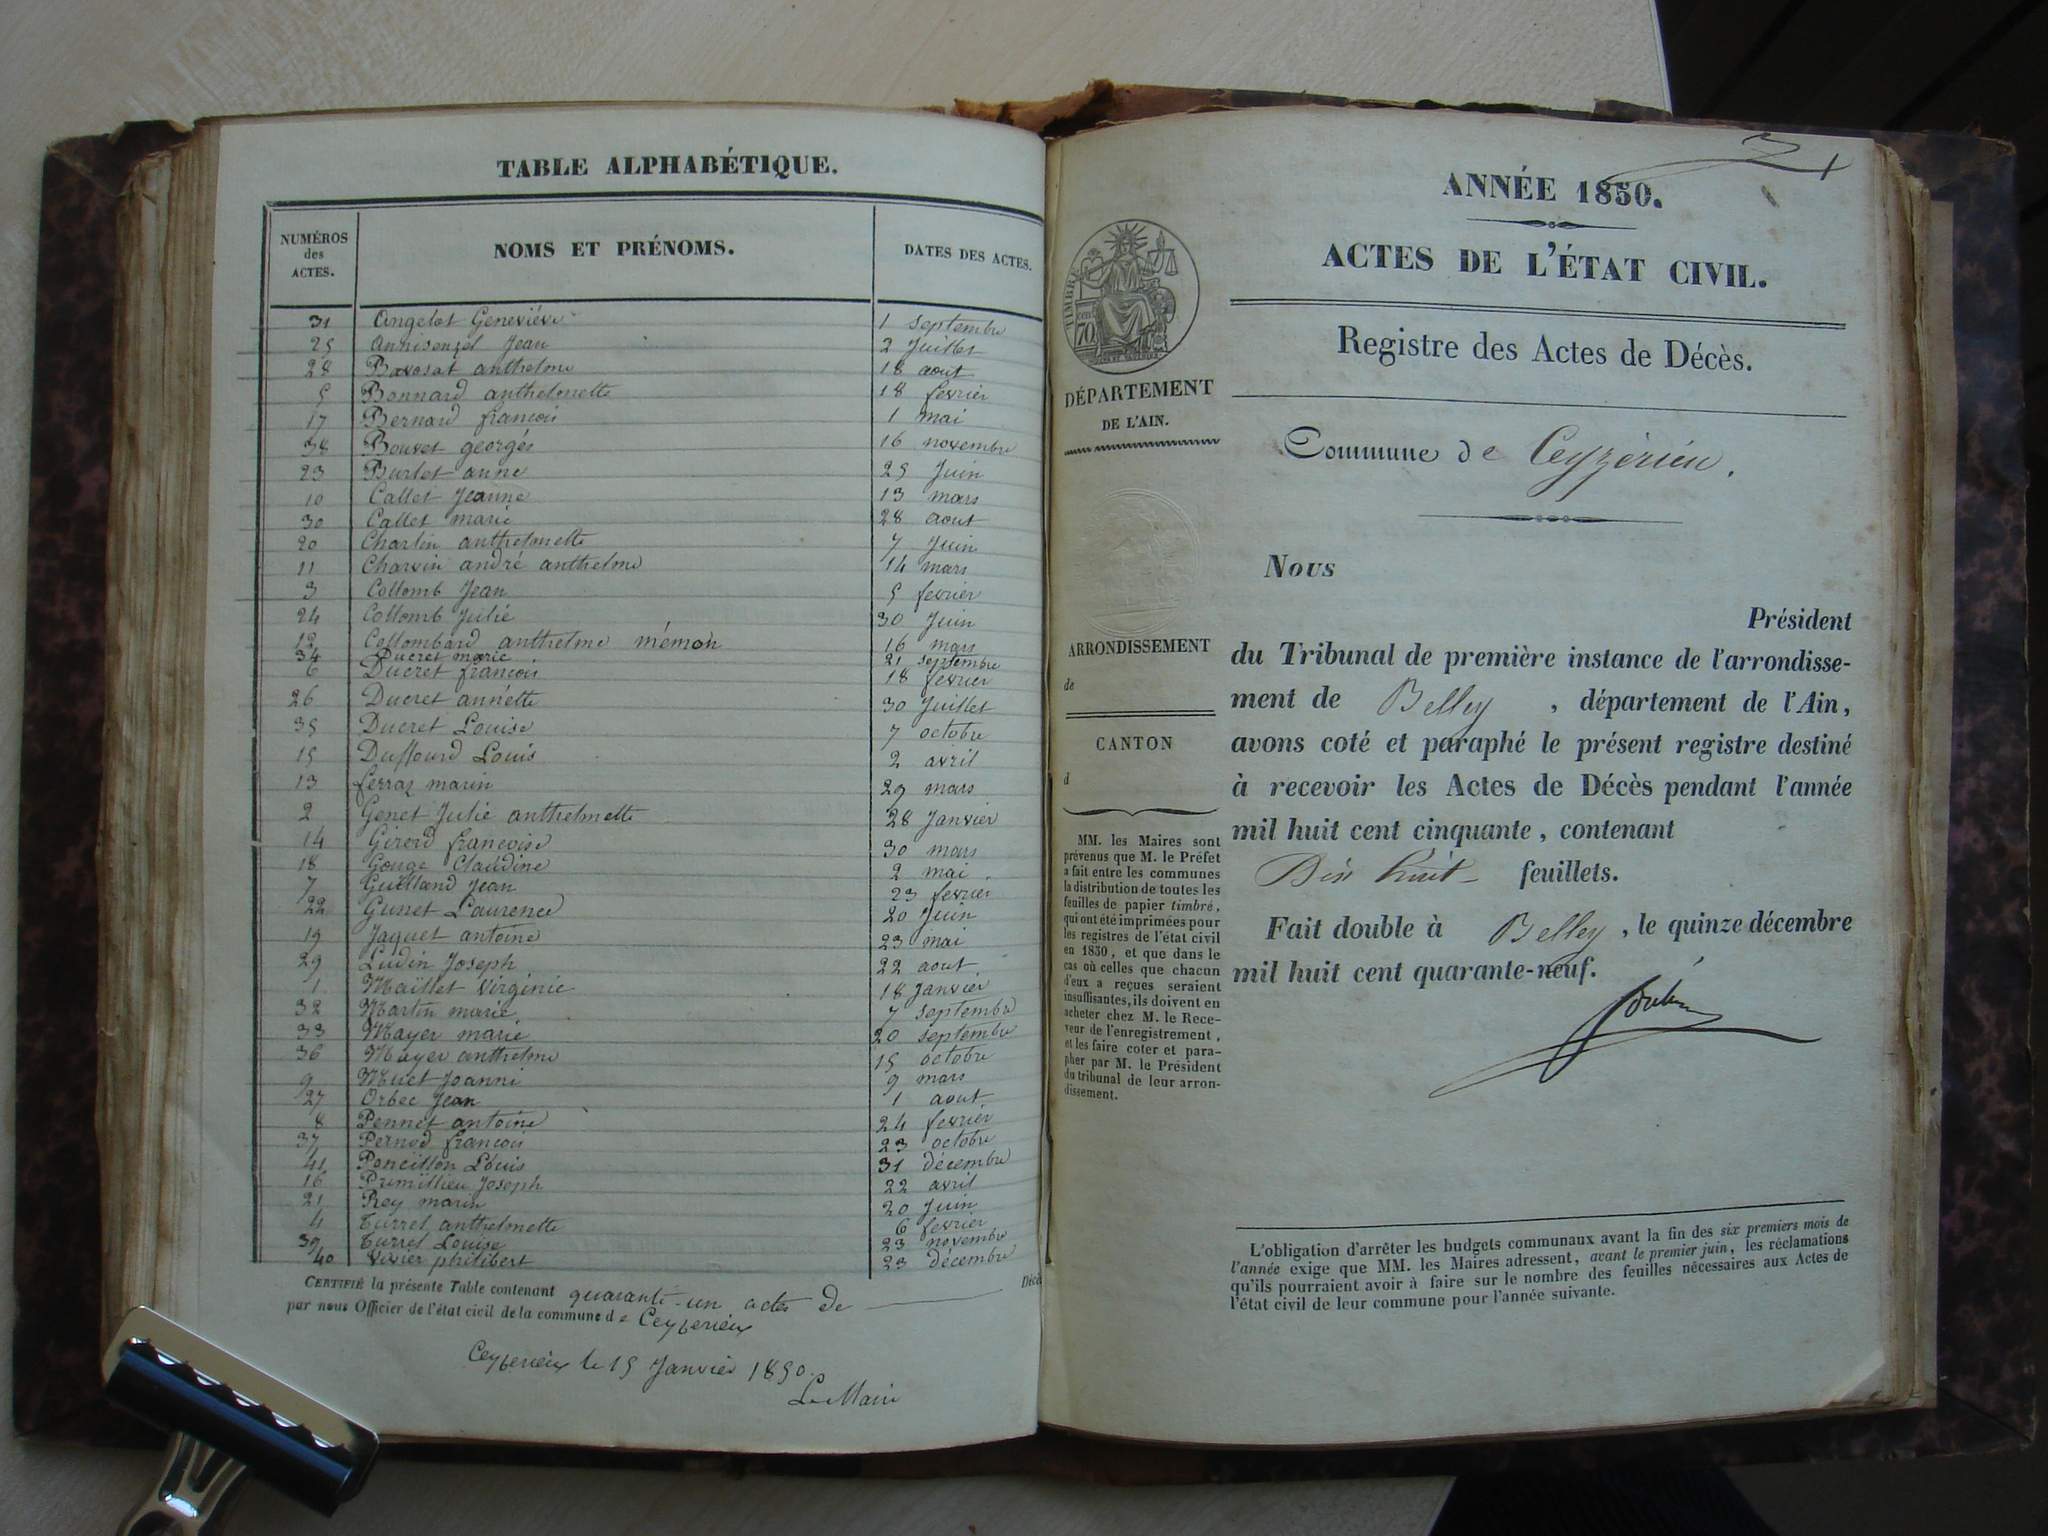 TABLE ALPHABÉTIQUE.
NUMÉROS des ACTES. NOMS ET PRÉNOMS. DATES DES ACTES.
31 Angelot Geneviève 1 septembre
25 Annisenzel Jean 2 Juillet
28 Bavosat anthelme 18 aout
5 Bonnard anthelmette 18 fevrier
17 Bernard francois 1 mai
38 Bouvet georges 16 novembre
23 Burlet anne 25 Juin
10 Callet Jeanne 13 mars
30 Callet marie 28 aout
20 Charlin anthelmette 7 Juin
11 Charvin andré anthelme 14 mars
3 Collomb Jean 5 fevrier
24 Collomb Julie 30 Juin
12 Collombard anthelme mémoin 16 mars
34 Ducret marie 21 septembre
6 Ducret francois 18 fevrier
26 Ducret annette 30 Juillet
35 Ducret Louise 7 octobre
15 Duflourd Louis 2 avril
13 ferraz marin 29 mars
2 Genet Julie anthelmette 28 Janvier
14 Girerd francoise 30 mars
18 Gouge Claudine 2 mai
7 Guilland Jean 23 fevrier
22 Gunet Laurence 20 Juin
19 Jaquet antoine 23 mai
29 Ludin Joseph 22 aout
1 Maillet virginie 18 Janvier
32 Martin marie 7 septembre
33 Mayer marie 20 septembre
36 Mayer anthelme 15 octobre
9 Muet Joanni 9 mars
27 Orbec Jean 1 aout
8 Pennet antoine 24 fevrier
37 Pernod francois 23 octobre
41 Poncillon Louis 31 décembre
16 Primillieu Joseph 22 avril
21 Rey marin 20 Juin
4 Turrel anthelmette 6 fevrier
39 Turrel Louise 23 novembre
40 Vivier philibert 23 décembre
CERTIFIÉ la présente Table contenant quarante-un actes de Décè
par nous Officier de l'état civil de la commune de Ceyzerieux
Ceyzerieux le 15 Janvier 1850.
Le Maire
ANNÉE 1850.
ACTES DE L'ÉTAT CIVIL.
Registre des Actes de Décès.
TIMBRE
70
DÉPARTEMENT
DE L'AIN.
ARRONDISSEMENT
de
CANTON
d
MM. les Maires sont
prévenus que M. le Préfet
a fait entre les communes
la distribution de toutes les
feuilles de papier timbré,
qui ont été imprimées pour
les registres de l'état civil
en 1850, et que dans le
cas où celles que chacun
d'eux a reçues seraient
insuffisantes, ils doivent en
acheter chez M. le Rece-
veur de l'enregistrement,
et les faire coter et para-
pher par M. le Président
du tribunal de leur arron-
dissement.
Commune de Ceyzérieu.
Nous
Président
du Tribunal de première instance de l'arrondisse-
ment de Belley, département de l'Ain,
avons coté et paraphé le présent registre destiné
à recevoir les Actes de Décès pendant l'année
mil huit cent cinquante, contenant
Dix huit feuillets.
Fait double à Belley, le quinze décembre
mil huit cent quarante-neuf.
L'obligation d'arrêter les budgets communaux avant la fin des six premiers mois de
l'année exige que MM. les Maires adressent, avant le premier juin, les réclamations
qu'ils pourraient avoir à faire sur le nombre des feuilles nécessaires aux Actes de
l'état civil de leur commune pour l'année suivante.